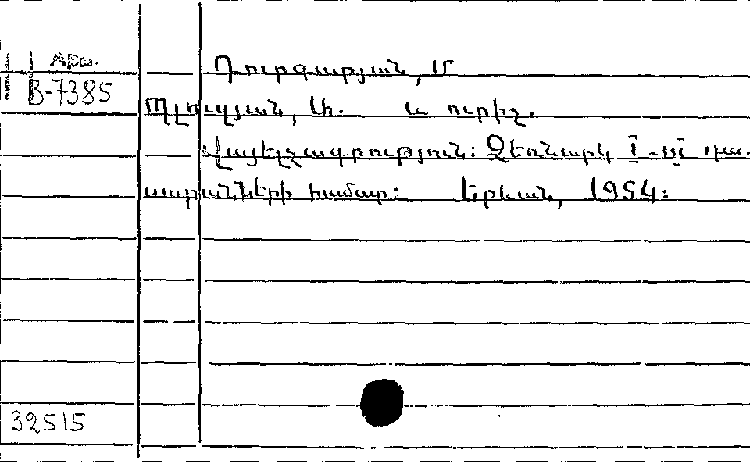 Արտ.
B-7385
Դուրգարյան, Մ
Մլուզյան, Ս. և ուրիշ.
Վայելչագրություն: Ձեռնարկ I-III դա-
սարանների համար: Երևան, 1954:
32515